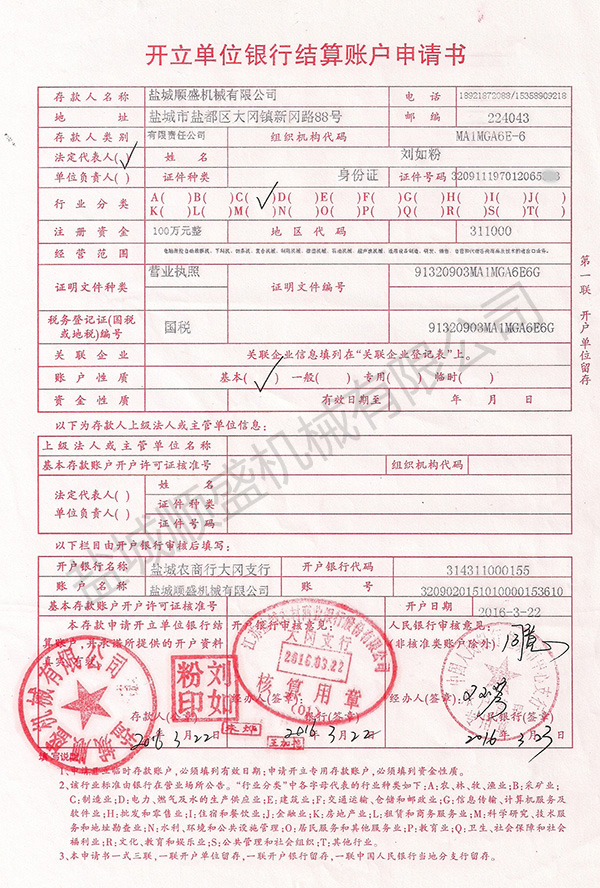 开立单位银行结算账户申请书
存款人名称 盐城顺盛机械有限公司 电话 18921872088/15358909218
地址 盐城市盐都区大冈镇新冈路88号 邮编 224043
存款人类别 有限责任公司 组织机构代码 MA1MGA6E-6
法定代表人(✓) 姓名 刘如粉
单位负责人( ) 证件种类 身份证 证件号码 320911197012065
行业分类 A( )B( )C(✓)D( )E( )F( )G( )H( )I( )J( )
K( )L( )M( )N( )O( )P( )Q( )R( )S( )T( )
注册资金 100万元整 地区代码 311000
经营范围
证明文件种类 营业执照 证明文件编号 91320903MA1MGA6E6G
税务登记证(国税或地税)编号 国税 91320903MA1MGA6E6G
关联企业 关联企业信息填列在“关联企业登记表”上。
账户性质 基本(✓) 一般( ) 专用( ) 临时( )
资金性质 有效日期至 年 月 日
以下为存款人上级法人或主管单位信息:
上级法人或主管单位名称
基本存款账户开户许可证核准号 组织机构代码
法定代表人( ) 姓名
单位负责人( ) 证件种类
证件号码
以下栏目由开户银行审核后填写:
开户银行名称 盐城农商行大冈支行 开户银行代码 314311000155
账户名称 盐城顺盛机械有限公司 账号 3209020151010000153610
基本存款账户开户许可证核准号 开户日期 2016-3-22
本存款人申请开立单位银行结算账户,并承诺所提供的开户资料真实、有效。
开户银行审核意见:
人民银行审核意见:
(非核准类账户除外)
大冈支行
2016.03.22
核算用章
(01)
刘如粉印
机械有限公司
经办人(签章) 经办人(签章)
存款人(签章) 银行(签章) 人民银行(签章)
2016年3月22日 2016年3月22日 2016年3月23日
填写说明:
1.申请开立临时存款账户,必须填列有效日期;申请开立专用存款账户,必须填列资金性质。
2.该行业标准由银行在营业场所公告。“行业分类”中各字母代表的行业种类如下:A:农、林、牧、渔业;B:采矿业;
C:制造业;D:电力、燃气及水的生产供应业;E:建筑业;F:交通运输、仓储和邮政业;G:信息传输、计算机服务及
软件业;H:批发和零售业;I:住宿和餐饮业;J:金融业;K:房地产业;L:租赁和商务服务业;M:科学研究、技术服
务和地址勘查业;N:水利、环境和公共设施管理;O:居民服务和其他服务业;P:教育业;Q:卫生、社会保障和社会
福利业;R:文化、教育和娱乐业;S:公共管理和社会组织;T:其他行业。
3.本申请书一式三联,一联开户单位留存,一联开户银行留存,一联中国人民银行当地分支行留存。
第一联 开户单位留存
盐城顺盛机械有限公司